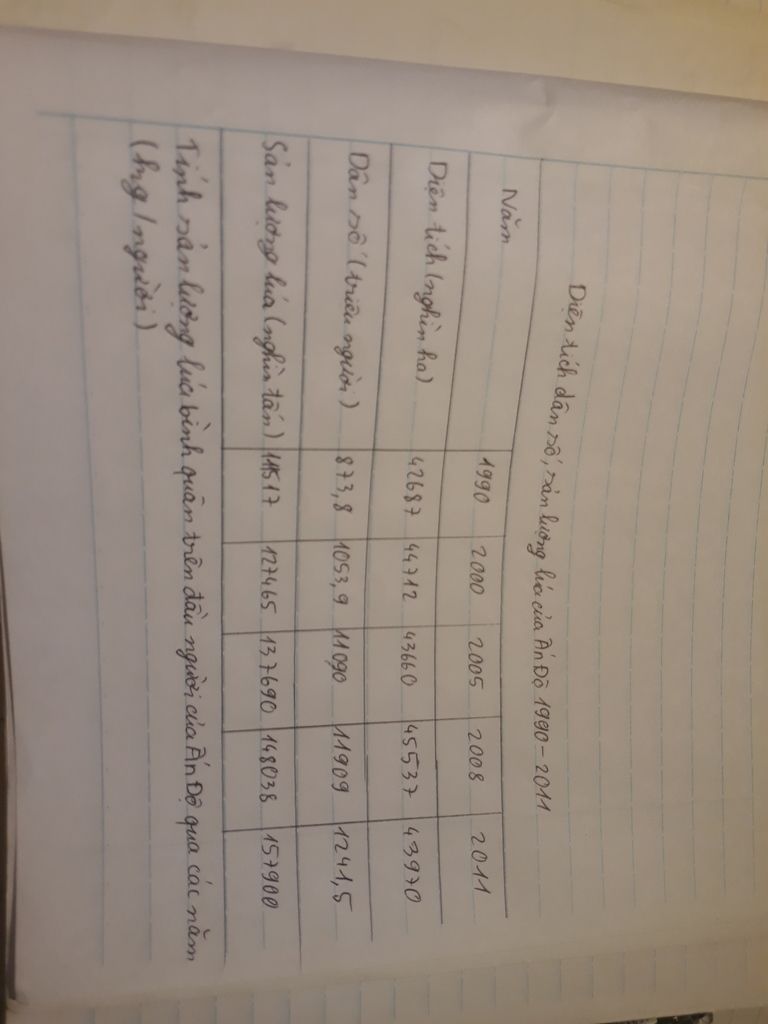 Diện tích dân số, sản lượng lúa của Ấn Độ 1990-2011
Năm 1990 2000 2005 2008 2011
Diện tích (nghìn ha) 42687 44712 43660 45537 43970
Dân số (triệu người) 873,8 1053,9 11090 11909 1241,5
Sản lượng lúa (nghìn tấn) 111517 127465 137690 148038 157900
Tính sản lượng lúa bình quân trên đầu người của Ấn Độ qua các năm
(kg / người)